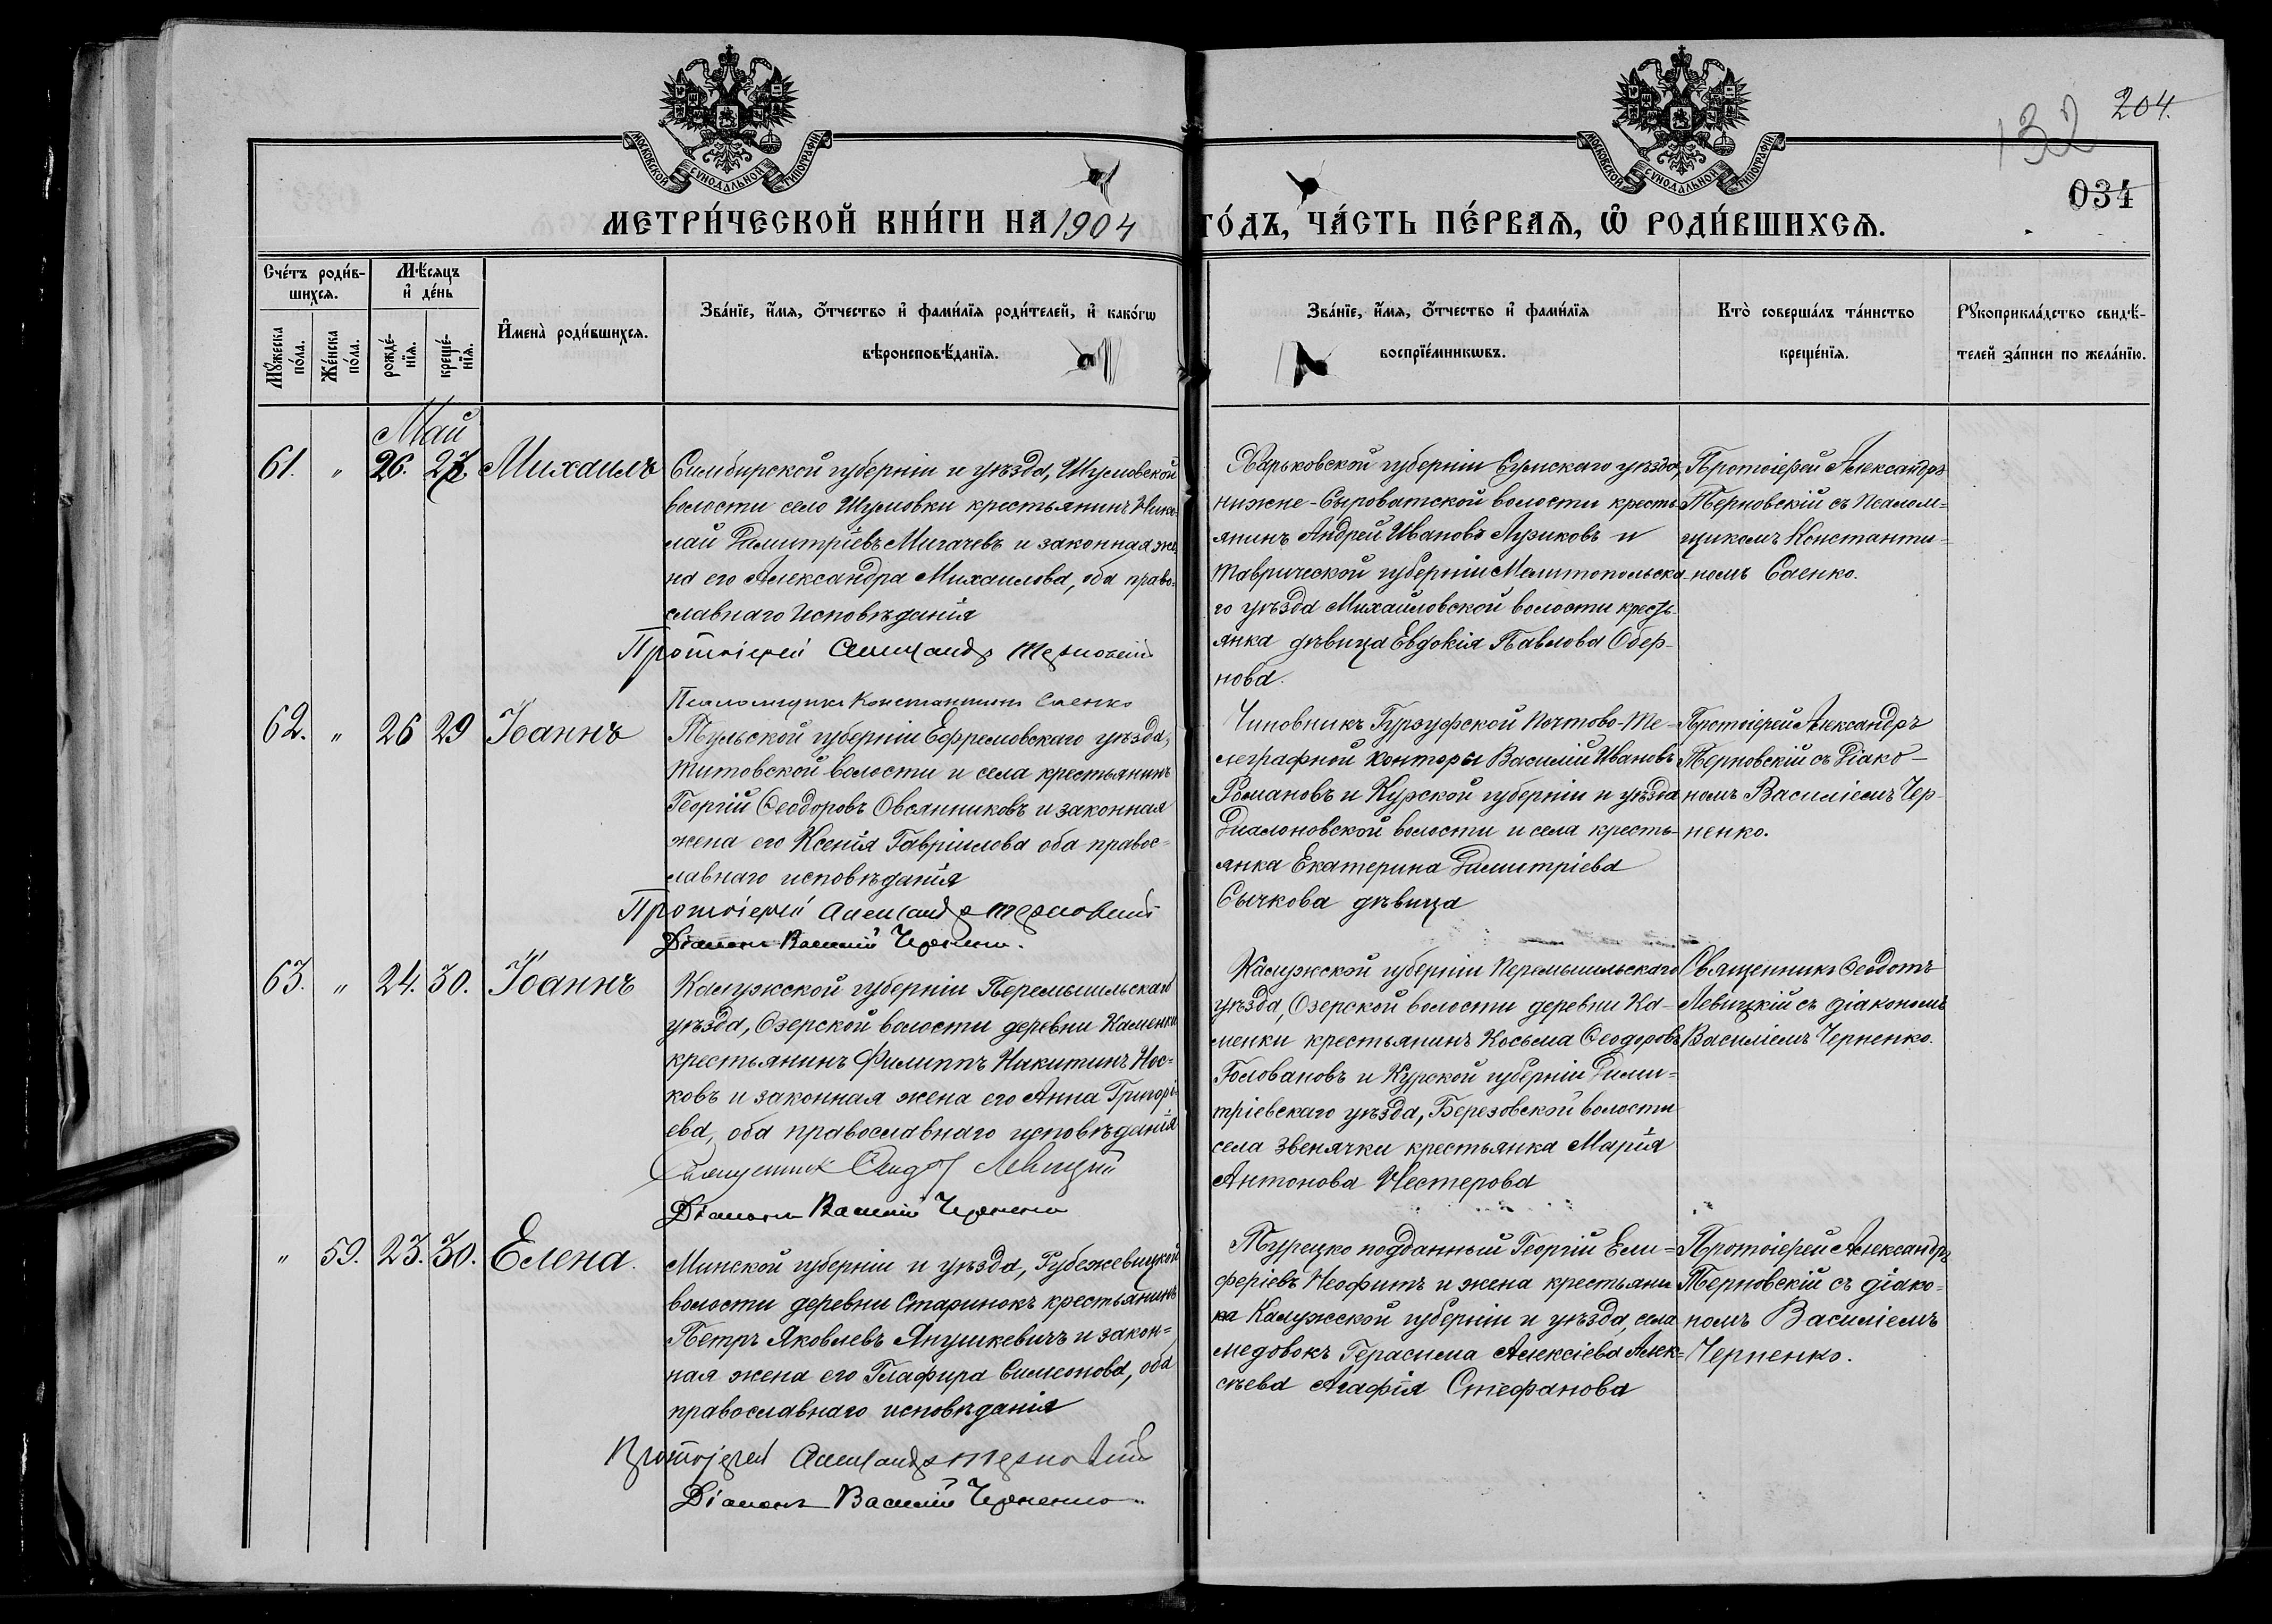 204.
132
034
МОСКОВСКОЙ СУНОДАЛЬНОЙ ТИПОГРАФІИ
МОСКОВСКОЙ СУНОДАЛЬНОЙ ТИПОГРАФІИ
МЕТРИ́ЧЕСКОЙ КНИ́ГИ НА 1904 ГО́ДЪ, ЧА́СТЬ ПЕ́РВАѦ, Ѡ҆ РОДИ́ВШИХСѦ.
Сче́тъ роди́в-
шихсѧ.
Мꙋ́жеска по́ла.
Же́нска по́ла.
Мѣ́сѧцъ
и҆ де́нь
рожде́-
нїѧ.
креще́-
нїѧ.
И҆мена̀ роди́вшихсѧ.
Зва́нїе, и҆́мѧ, ѻ҆́тчество и҆ фами́лїѧ роди́телей, и҆ како́гѡ
вѣроисповѣ́данїѧ.
Зва́нїе, и҆́мѧ, ѻ҆́тчество и҆ фами́лїѧ
воспрїе́мникѡвъ.
Кто̀ соверша́лъ та́инство
креще́нїѧ.
Рꙋкоприкла́дство свидѣ́-
телей за́писи по жела́нїю.
Май
61. " 26. 27. Михаилъ
Симбирской губерніи и уѣзда, Шумовской
волости село Шумовки крестьянинъ Нико-
лай Димитріевъ Мигачевъ и законная же-
на его Александра Михаилова, оба право-
славнаго исповѣданія
Протоіерей Александръ Терновскій
Псаломщикъ Константинъ Саенко
Харьковской губерніи Сумскаго уѣзда,
нижне-Сыроватской волости кресть-
янинъ Андрей Ивановъ Лузиковъ и
Таврической губерніи Мелитопольска-
го уѣзда Михайловской волости кресть-
янка дѣвица Евдокія Павлова Обер-
нова.
Протоіерей Александръ
Терновскій съ псалом=
щикомъ Константи-
номъ Саенко.
62. " 26 29 Іоаннъ
Тульской губерніи Ефремовскаго уѣзда,
Титовской волости и села крестьянинъ
Георгій Ѳеодоровъ Овсянниковъ и законная
жена его Ксенія Гавріилова оба правос=
лавнаго исповѣданія
Протоіерей Александръ Терновскій
Діаконъ Василій Черненко.
Чиновникъ Гурзуфской Почтово-Те-
леграфной конторы Василій Ивановъ
Романовъ и Курской губерніи и уѣзда
Диалоновской волости и села кресть-
янка Екатерина Димитріева
Сычкова дѣвица
Протоіерей Александръ
Терновскій съ Діако-
номъ Василіемъ Чер-
ненко.
63. " 24. 30. Іоаннъ
Калужской губерніи Перемышльскаго
уѣзда, Озерской волости деревни Каменки
крестьянинъ Филиппъ Никитинъ Нос=
ковъ и законная жена его Анна Григорі-
ева, оба православнаго исповѣданія
Священникъ Ѳеодотъ Левицкій
Діаконъ Василій Черненко
Калужской губерніи Перемышльскаго
уѣзда, Озерской волости деревни Ка-
менки крестьянинъ Косьма Ѳеодоровъ
Головановъ и Курской губерніи Дими=
тріевскаго уѣзда, Березовской волости
села Звенячки крестьянка Марія
Антонова Нестерова
Священникъ Ѳеодотъ
Левицкій съ діакономъ
Василіемъ Черненко.
" 59. 23. 30. Елена.
Минской губерніи и уѣзда, Рубежевицкой
волости деревни Старинокъ крестьянинъ
Петръ Яковлевъ Янушкевичъ и закон=
ная жена его Глафира Симеонова, оба
православнаго исповѣданія
Протоіерей Александръ Терновскій
Діаконъ Василій Черненко
Турецко подданный Георгій Ели=
феріевъ Неофитъ и жена крестьяни
на Калужской губерніи и уѣзда, села
медовокъ Герасима Алексіева Алек=
сѣева Агафія Стефанова
Протоіерей Александръ
Терновскій съ діако=
номъ Василіемъ
Черненко.